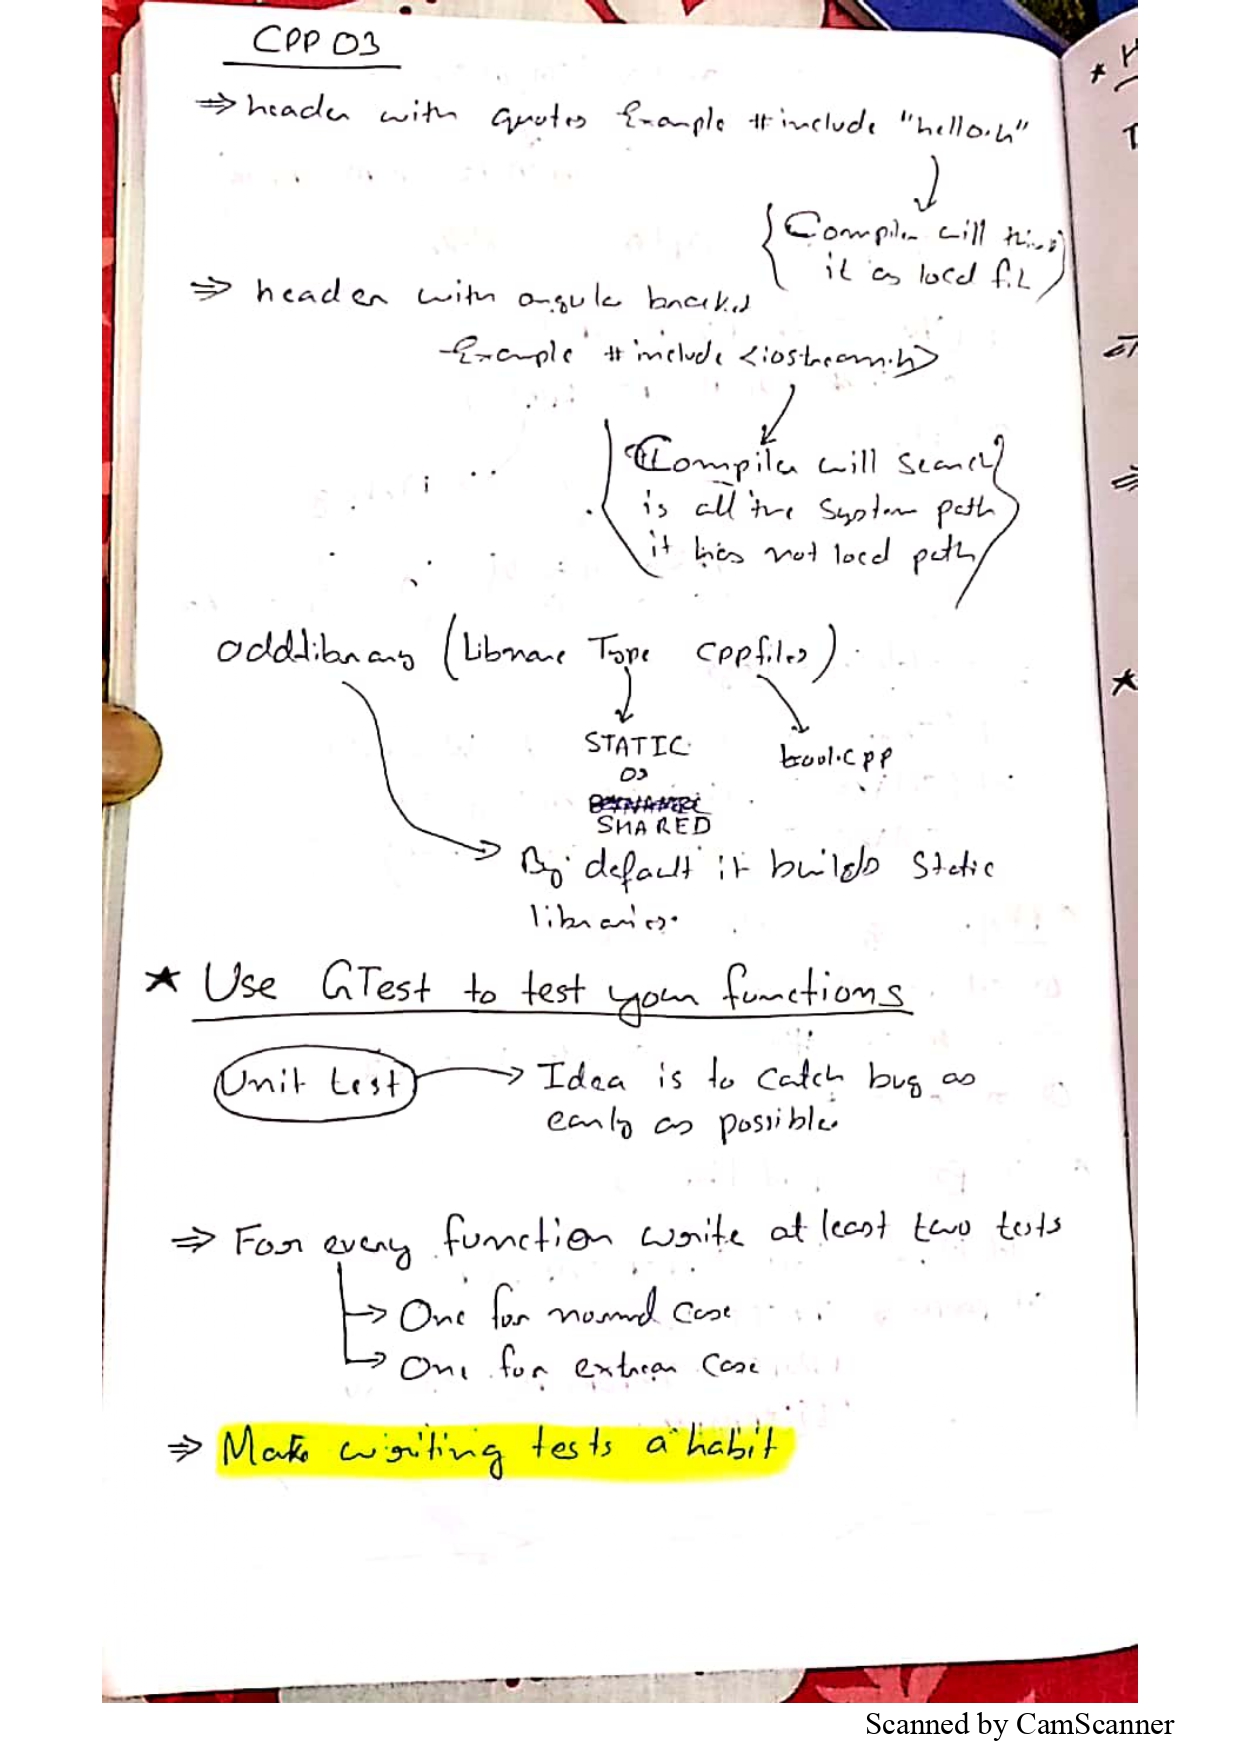 CPP 03
⇒ header with quotes Example #include "hello.h"
Compiler will
it as local file
⇒ header with angular bracket
Example #include <iostream.h>
Compiler will search
is all the system path
it has not local path
addlibrary (Libname Type cppfiles)
STATIC
or
SHARED
tool.cpp
By default it builds static
libraries.
★ Use GTest to test your functions
Unit test → Idea is to catch bug as
early as possible.
⇒ For every function write at least two tests
→ One for normal case
→ One for extream case
⇒ Make writing tests a habit
Scanned by CamScanner